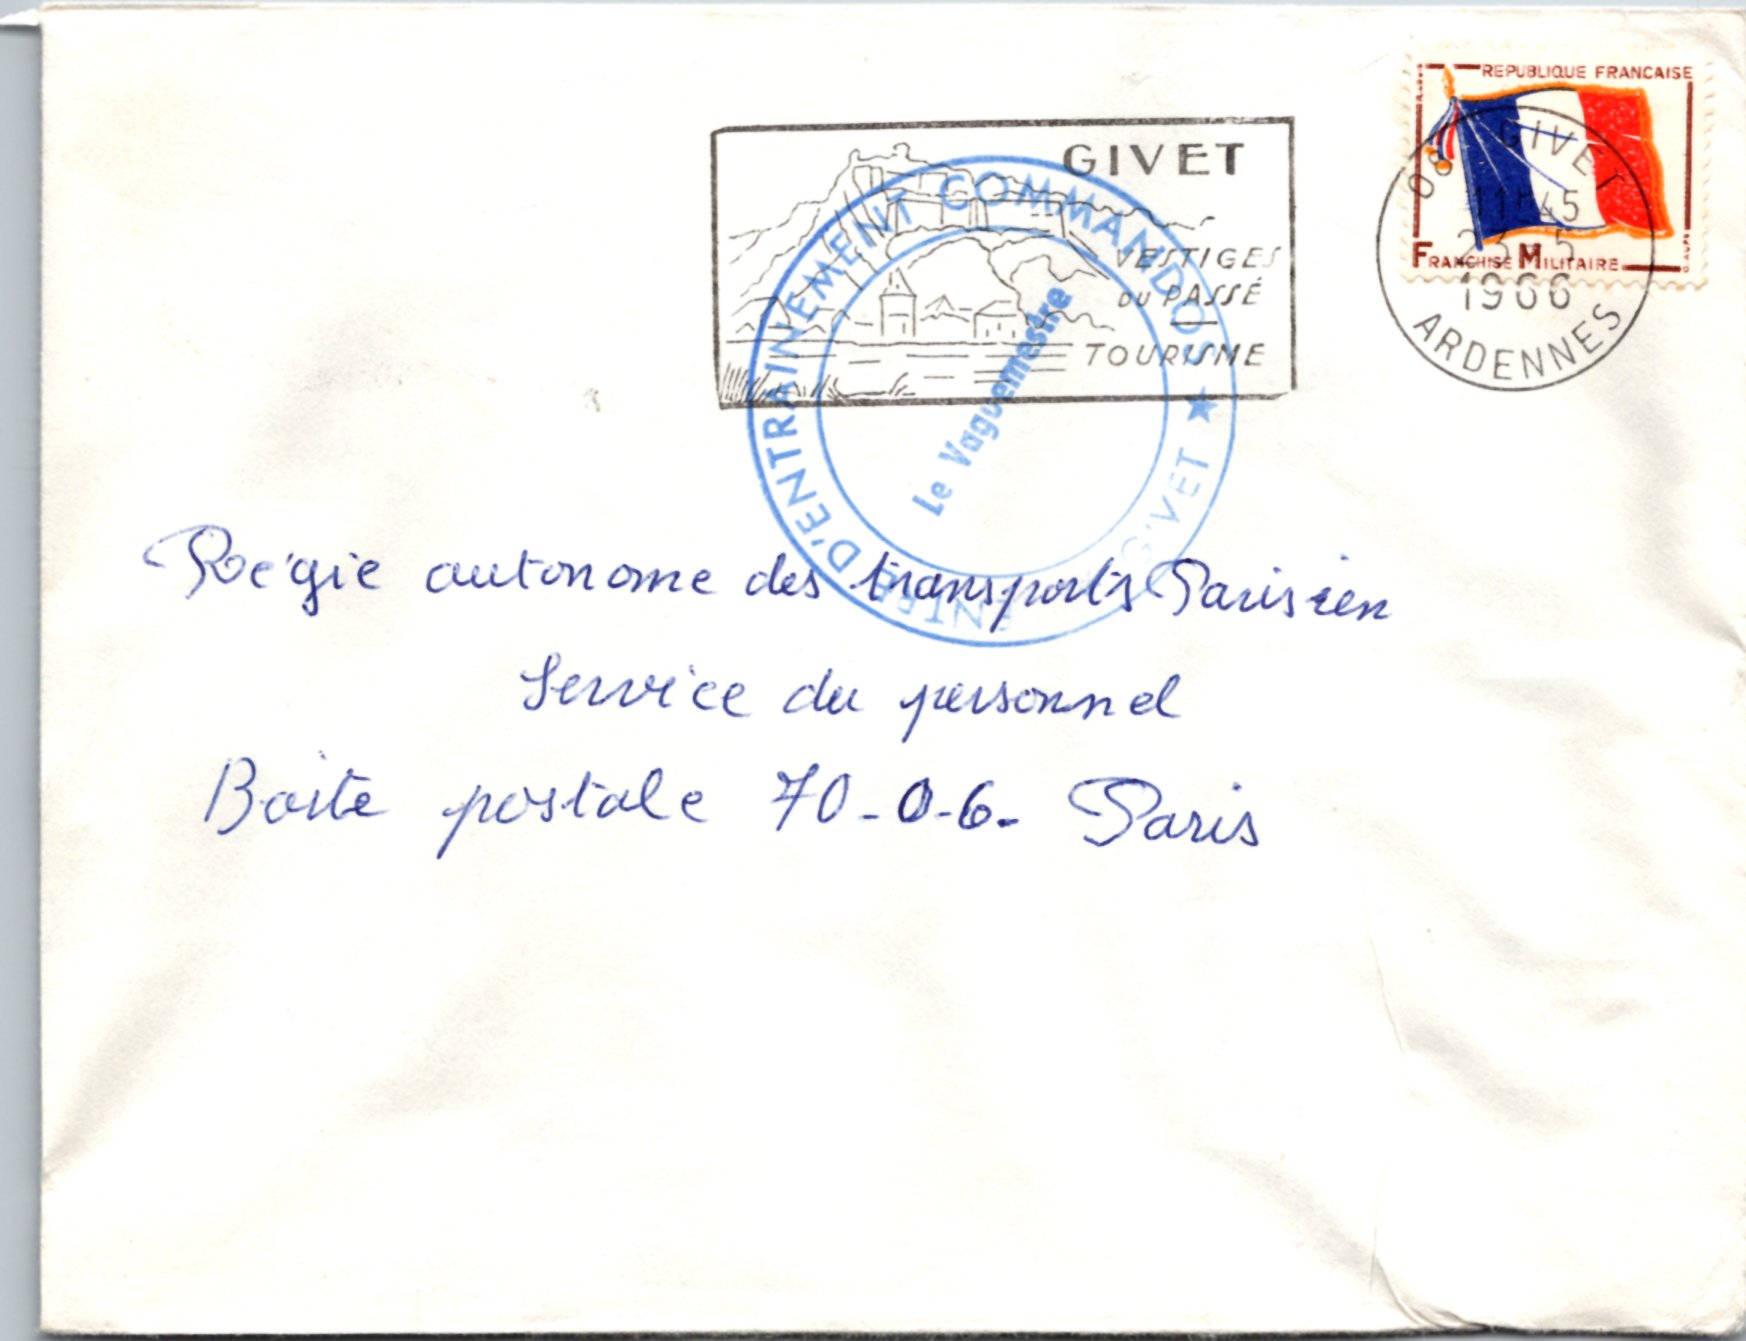 REPUBLIQUE FRANCAISE
FRANCHISE MILITAIRE
08 GIVET
11H45
23-5
1966
ARDENNES
GIVET
VESTIGES
DU PASSÉ
TOURISME
D'ENTRAINEMENT COMMANDOS ★ GIVET
Le Vaguemestre
Régie autonome des transports Parisien
Service du personnel
Boite postale 70-06. Paris